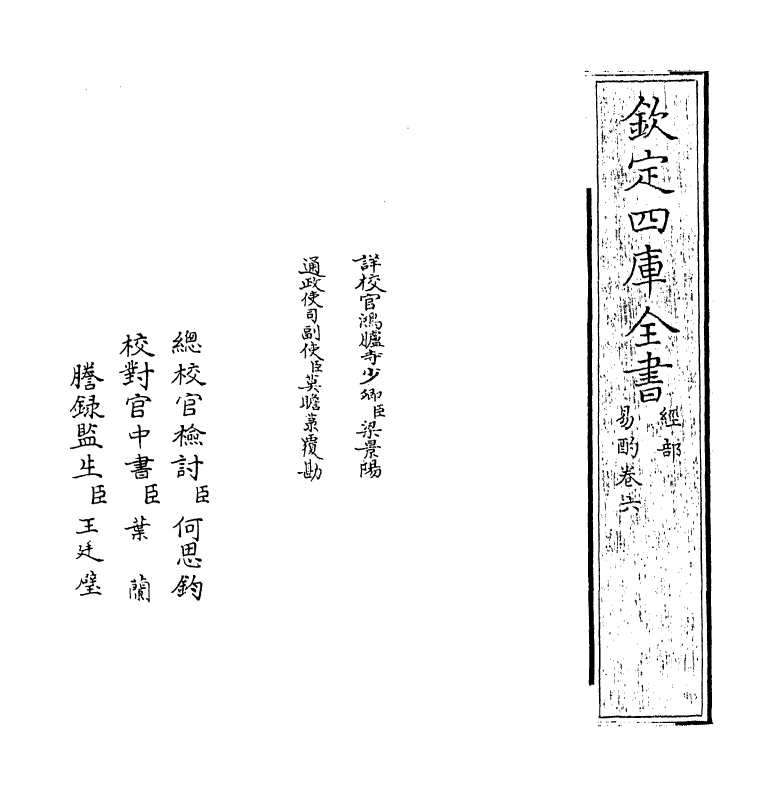 欽定四庫全書
經部
易酌卷六
詳校官鴻臚寺少卿臣梁景陽
通政使司副使臣莫瞻菉覆勘
總校官檢討臣何思鈞
校對官中書臣葉蘭
謄録監生臣王廷璧